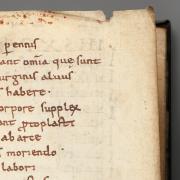 pennis
ant omia que sunt
uirginis aluus
s habere·
orpore supplex
ant ꝓtoplasti
abarce
s moriendo·
labor;